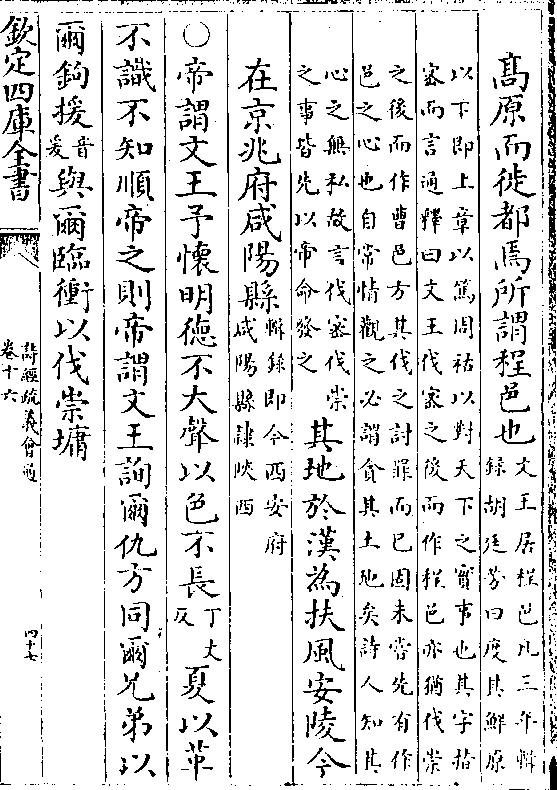 髙原而徙都焉所謂程邑也文王居程邑凡三年輯
録胡廷芳曰度其鮮原
以下即上章以篤周祜以對天下之實事也其字指
密而言通釋曰文王伐密之後而作程邑亦猶伐崇
之後而作豐邑方其伐之討罪而已固未嘗先有作
邑之心也自常情觀之必謂貪其土地矣詩人知其
心之無私故言伐密伐崇
之事皆先以帝命發之
其地於漢為扶風安陵今
在京兆府咸陽縣輯録即今西安府
咸陽縣隷陜西
○帝謂文王予懷明徳不大聲以色不長丁丈反夏以革
不識不知順帝之則帝謂文王詢爾仇方同爾兄弟以
爾鉤援音爰與爾臨衝以伐崇墉
欽定四庫全書
詩經疏義會通
卷十六
四十七